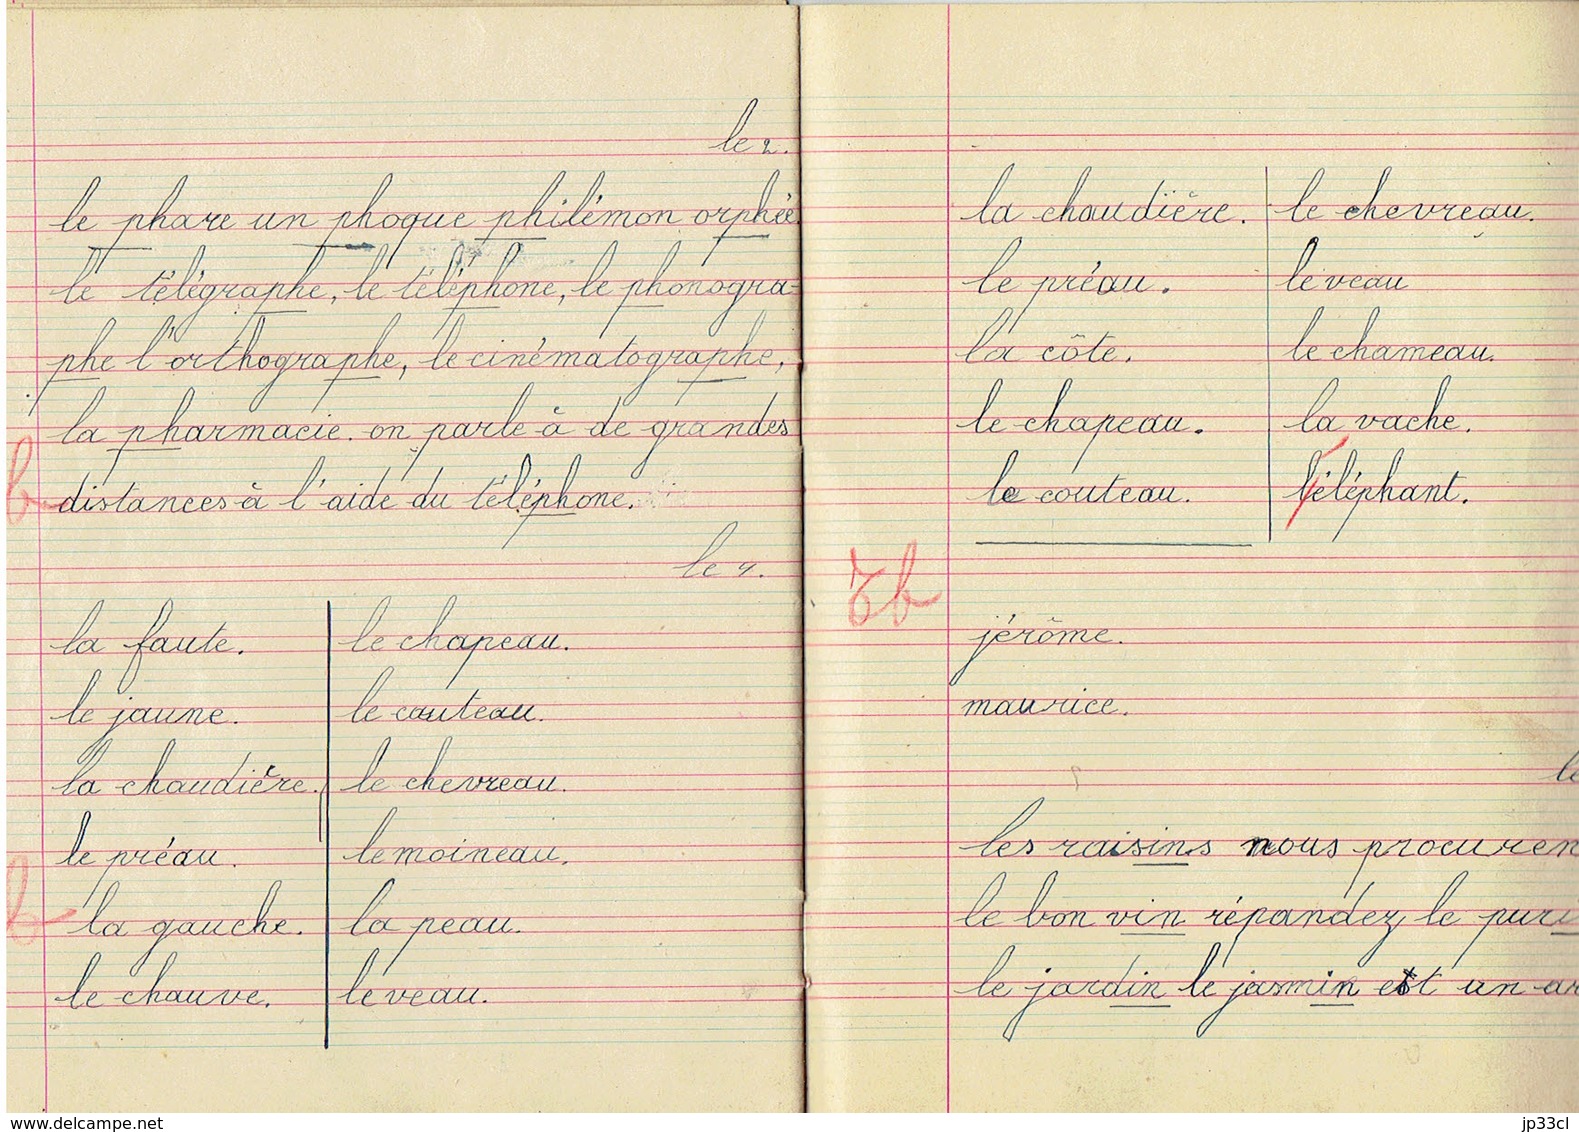 le 2.
le phare un phoque philémon orphée
le télégraphe, le téléphone, le phonogra-
phe l'orthographe, le cinématographe,
la pharmacie. on parle à de grandes
b distances à l'aide du téléphone.
le 4.
la faute. le chapeau.
le jaune. le couteau.
la chaudière. le chevreau.
le préau. le moineau.
b la gauche. la peau.
le chauve. le veau.
la chaudière. le chevreau.
le préau. le veau
la côte. le chameau.
le chapeau. la vache.
le couteau. l'éléphant.
Tb
jérôme.
maurice.
le
les raisins nous procuren
le bon vin répandez le puri
le jardin le jasmin est un ar
www.delcampe.net jp33cl